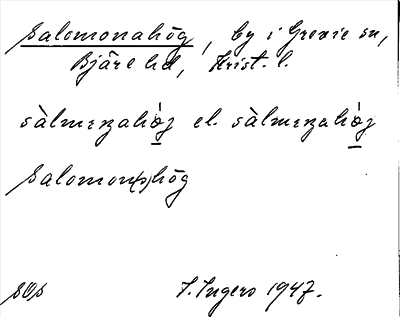 Salomonahög, by i Grevie sn,
Bjäre hd, Krist. l.
sàlmɛnahǿ̱j el. sàlmɛnahǿ̱j
Salomon(s)hög
SOS J. Ingers 1947.